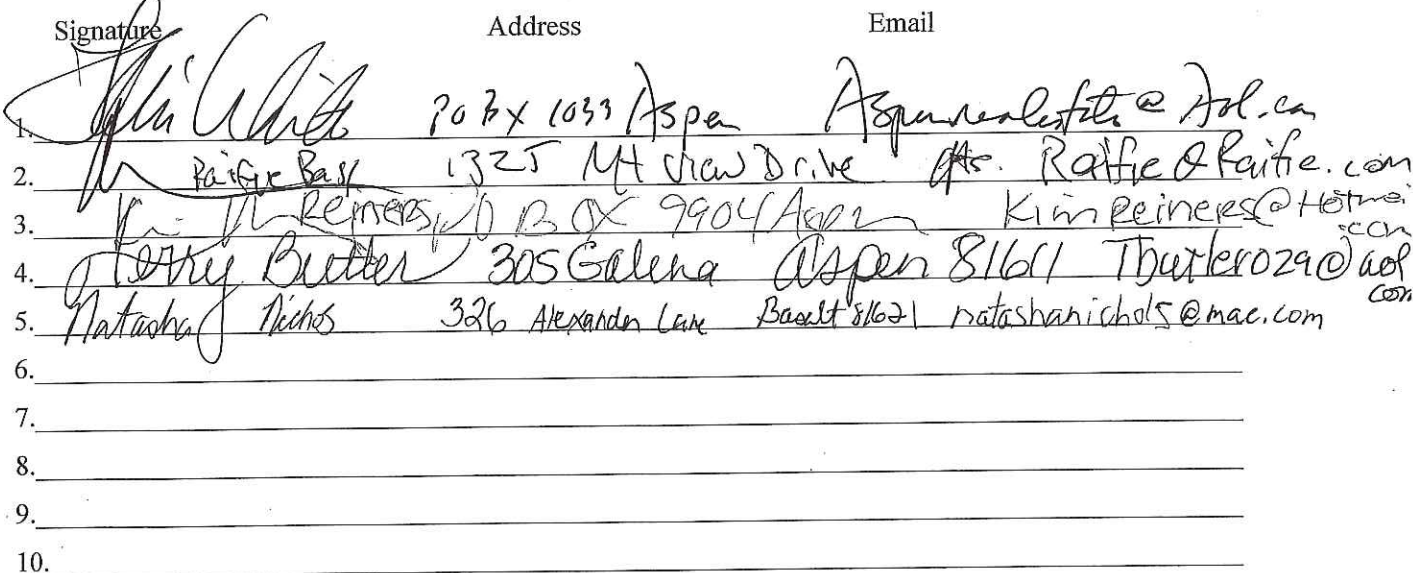 Signature Address Email
1. White PO BX 1033 Aspen @ Aol.com
2. Raifie Bass 1325 Mt View Drive Raifie@Raifie.com
3. Reiners PO BOX 9904 Aspen KimReiners@Hotmai .com
4. Terry Butler 305 Galena Aspen 81611 Tbutler029@aol com
5. Natasha Nichols 326 Alexander Lane Basalt 81621 natashanichols@mac.com
6.
7.
8.
9.
10.